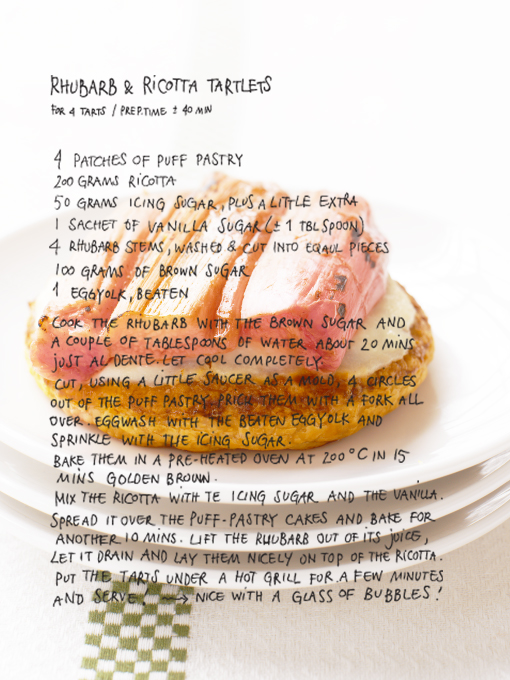 RHUBARB & RICOTTA TARTLETS
FOR 4 TARTS / PREP.TIME ± 40 MIN
4 PATCHES OF PUFF PASTRY
200 GRAMS RICOTTA
50 GRAMS ICING SUGAR, PLUS A LITTLE EXTRA
1 SACHET OF VANILLA SUGAR (± 1 TBLSPOON)
4 RHUBARB STEMS, WASHED & CUT INTO EQAUL PIECES
100 GRAMS OF BROWN SUGAR
1 EGGYOLK, BEATEN
COOK THE RHUBARB WITH THE BROWN SUGAR AND
A COUPLE OF TABLESPOONS OF WATER ABOUT 20 MINS
JUST AL DENTE. LET COOL COMPLETELY.
CUT, USING A LITTLE SAUCER AS A MOLD, 4 CIRCLES
OUT OF THE PUFF PASTRY. PRICK THEM WITH A FORK ALL
OVER. EGGWASH WITH THE BEATEN EGGYOLK AND
SPRINKLE WITH THE ICING SUGAR.
BAKE THEM IN A PRE-HEATED OVEN AT 200°C IN 15
MINS GOLDEN BROWN.
MIX THE RICOTTA WITH TE ICING SUGAR AND THE VANILLA.
SPREAD IT OVER THE PUFF-PASTRY CAKES AND BAKE FOR
ANOTHER 10 MINS. LIFT THE RHUBARB OUT OF ITS JUICE,
LET IT DRAIN AND LAY THEM NICELY ON TOP OF THE RICOTTA.
PUT THE TARTS UNDER A HOT GRILL FOR A FEW MINUTES
AND SERVE! → NICE WITH A GLASS OF BUBBLES!